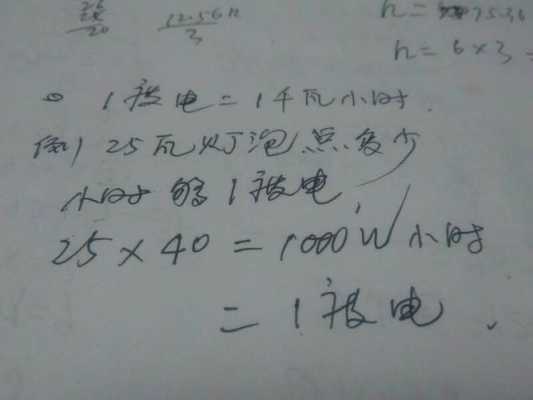 20
12.56h
3
h=
75.36
h=6×3=
。1度电=1千瓦小时.
例) 25瓦灯泡点多少
小时够1度电
25×40=1000W小时
=1度电.